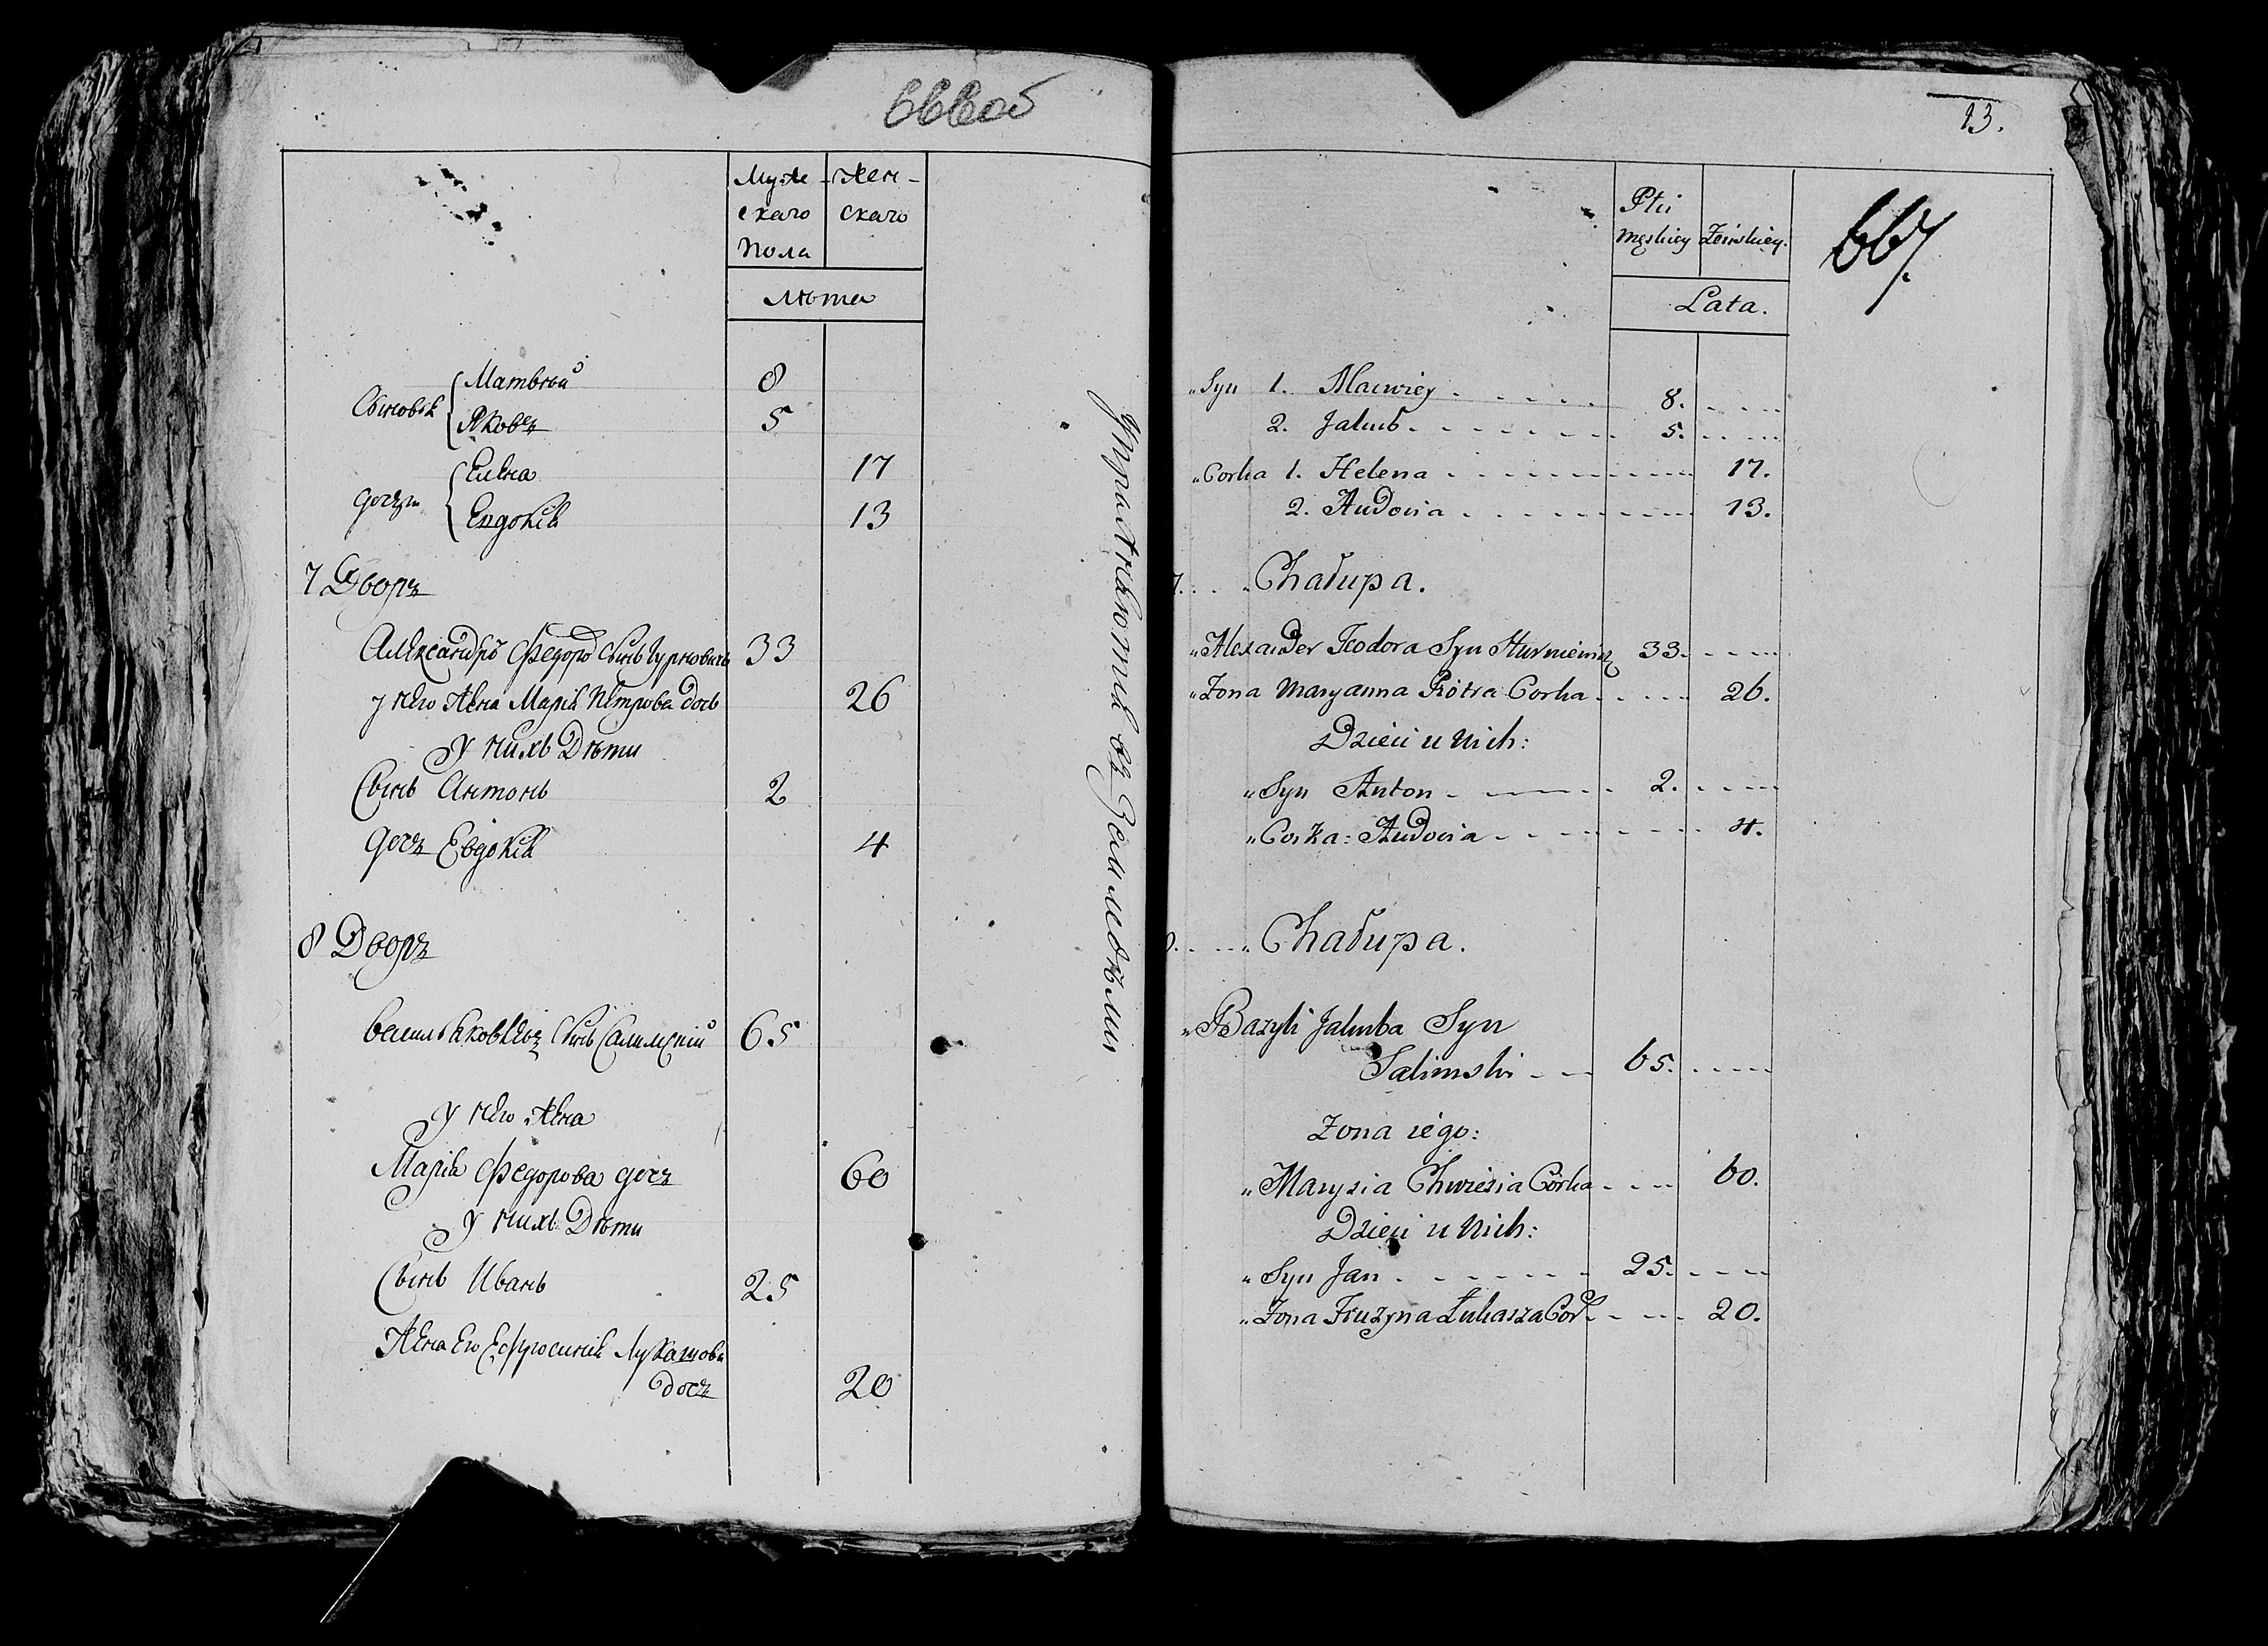 666об
Муже- Жен-
скаго скаго
Пола
Лѣта
Сыновья Матвѣй 8
Яковъ 5
дочери Елена 17
Евдокия 13
7 Дворъ
Александръ Федоров Сынъ Гурновичь 33
у него Жена Мария Петрова дочь 26
У нихъ Дѣти
Сынъ Антонъ 2
дочь Евдокия 4
8 Дворъ
Василь Яковлевъ Сынъ Салимский 65
У него Жена
Мария Федорова дочь 60
У нихъ Дѣти
Сынъ Иванъ 25
Жена Его Ефросиния Лукашова
дочь 20
въ Замлевѣми
13.
667.
Płci
Męskiey Żeńskiey.
Lata.
„Syn 1. Maciviey 8.
2. Jakub 5.
„Corka 1. Helena 17.
2. Audocia 13.
7. „Chałupa.
„Alexander Teodora Syn Hurniewicz 33.
„Zona Maryanna Piotra Corka 26.
Dzieci u Nich:
„Syn Anton 2.
„Corka: Audocia 4.
„Chałupa.
„Bazyli Jakuba Syn
Salimski 65.
Zona iego:
„Marysia Chwiesia Córka 60.
Dzieci u Nich:
„Syn Jan 25.
„Zona Fruzyna Łukasza Cor. 20.